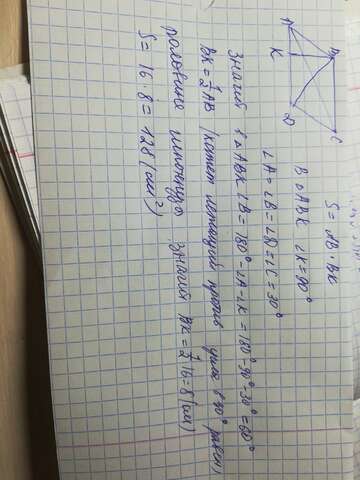 A
B
K
D
C
S = AB · BK
В △ABK ∠K = 90°
∠A = ∠B = ∠D = ∠C = 30°
Значит в △ABK ∠B = 180° - ∠A - ∠K = 180° - 90° - 30° = 60°
BK = 1/2 AB (катет лежащий против угла в 30° равен
половине гипотенузы) Значит BK = 1/2 16 = 8 (см)
S = 16 · 8 = 128 (см²)